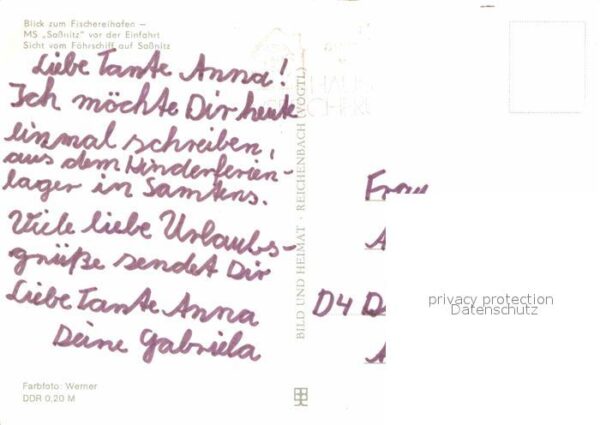 Blick zum Fischereihafen —
MS „Saßnitz" vor der Einfahrt
Sicht vom Fährschiff auf Saßnitz
Liebe Tante Anna!
Ich möchte Dir heute
einmal schreiben,
aus dem Kinderferien-
lager in Samtens.
Viele liebe Urlaubs-
grüße sendet Dir
Liebe Tante Anna
Deine Gabriela
Farbfoto: Werner
DDR 0,20 M
BILD UND HEIMAT · REICHENBACH (VOGTL)
HAUS
Frau
A
D4 D
A
privacy protection
Datenschutz